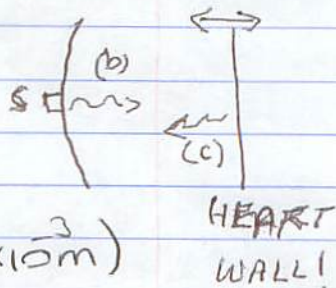 (b)
S
(c)
HEART
WALL!
x10⁻³m)